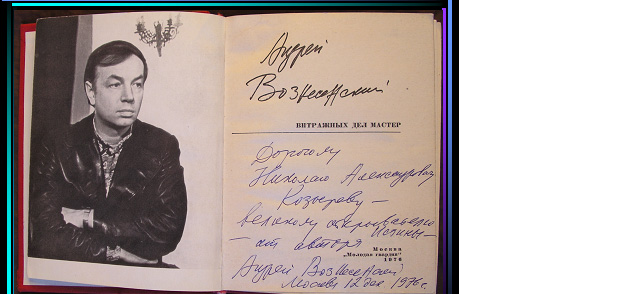 Андрей
Вознесенский
ВИТРАЖНЫХ ДЕЛ МАСТЕР
Дорогому
Николаю Александровичу
Козыреву —
великому открывателю
Истины —
— от автора
Москва
„Молодая гвардия“
1976
Андрей Вознесенский
Москва 12 дек 1976 г.